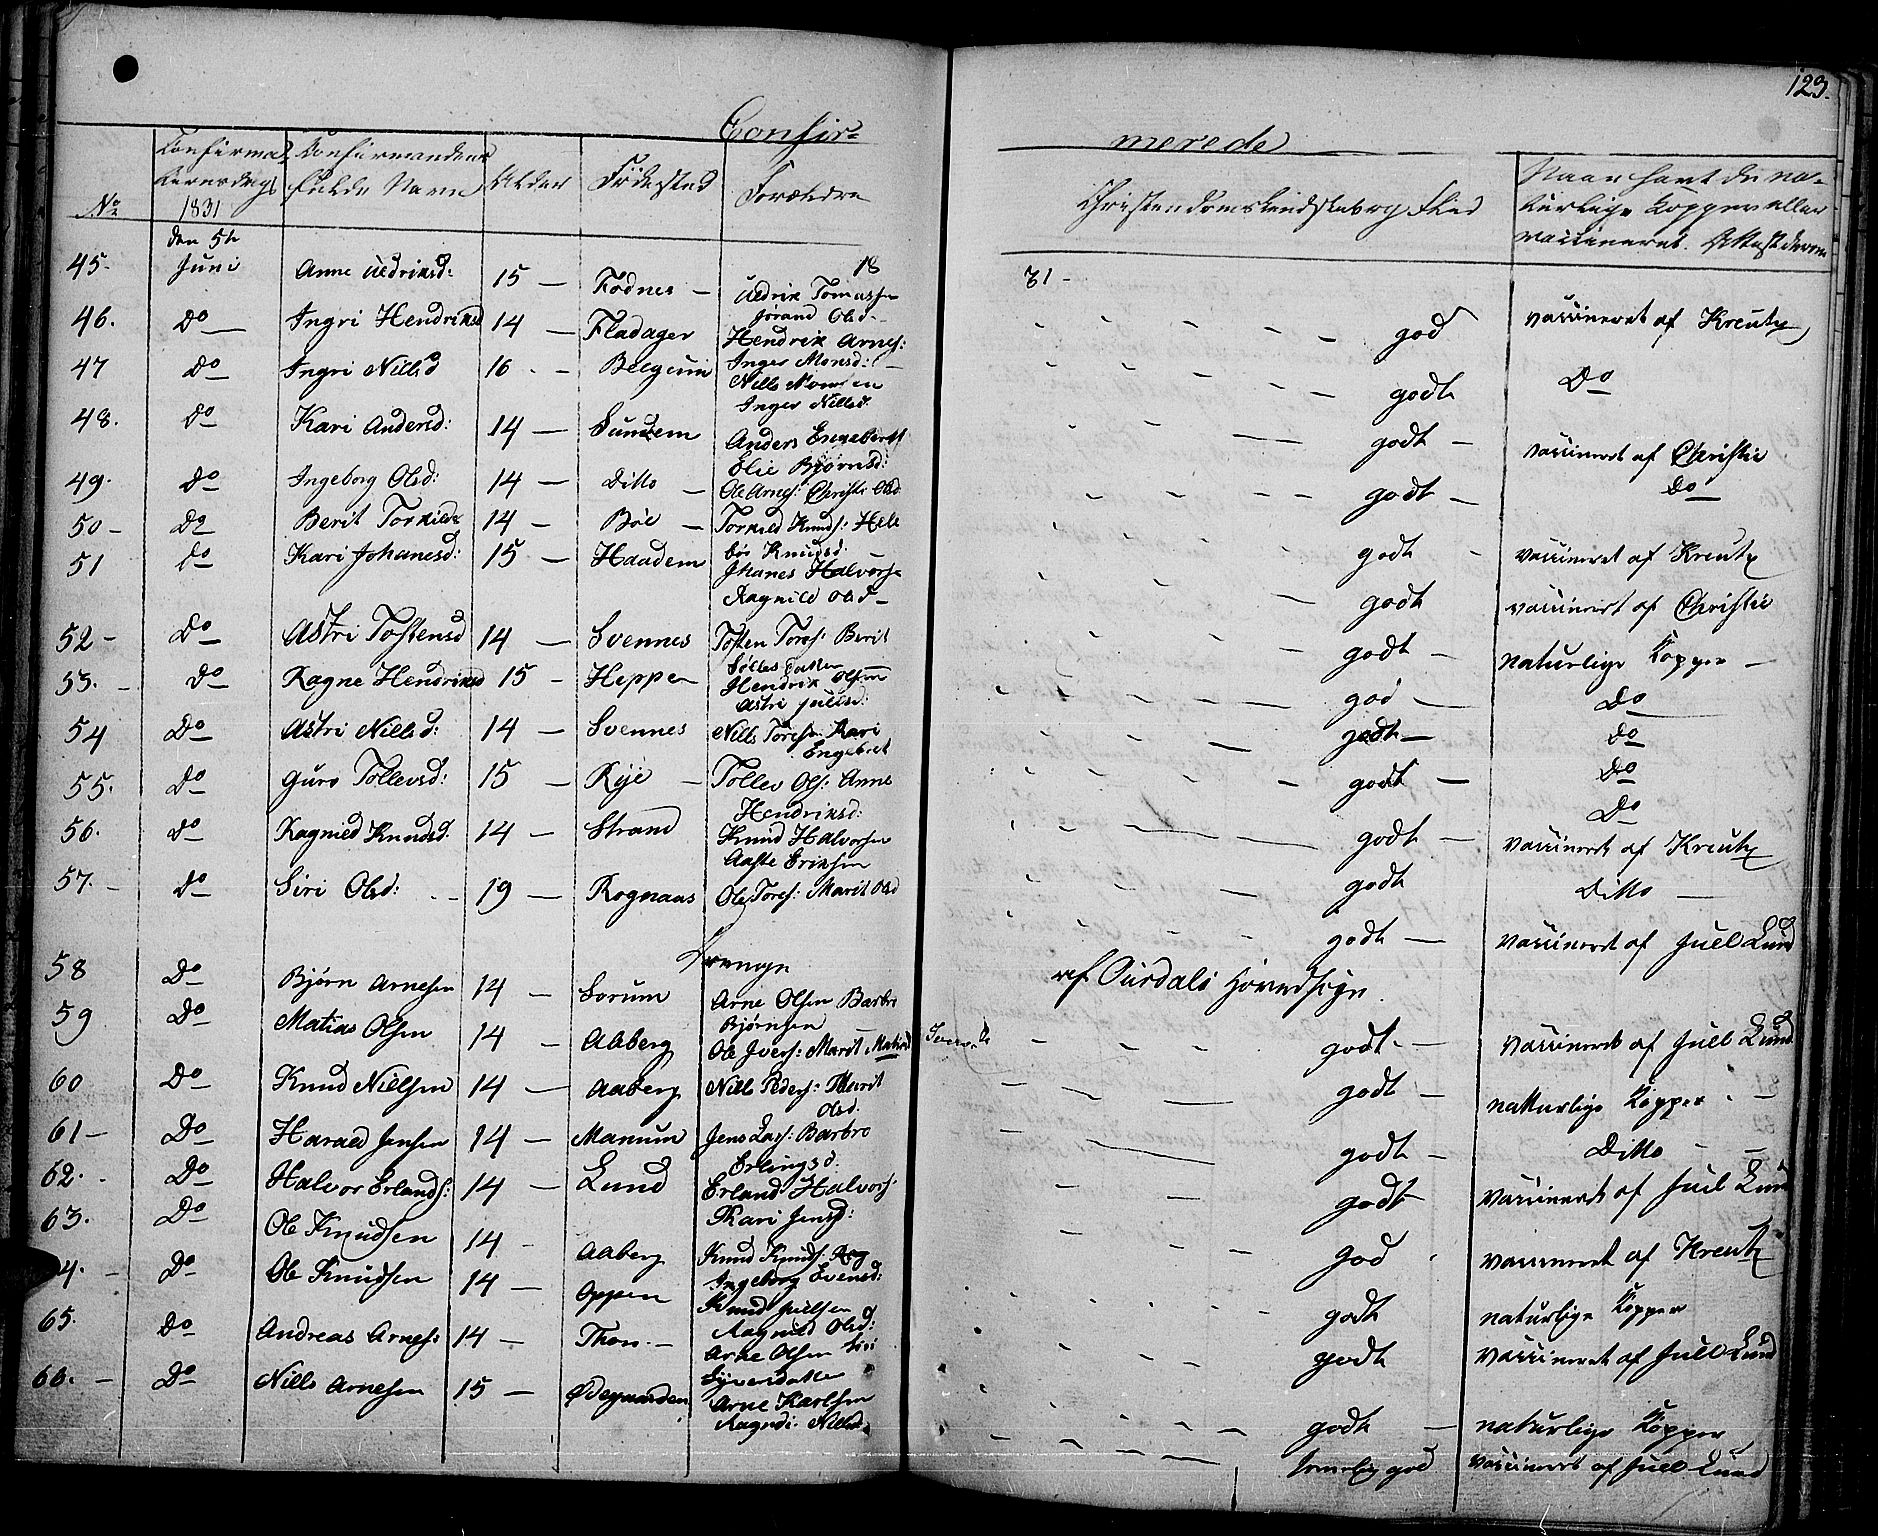 123.
Confir-
merede
No
Confirma-
tionsdag
1831
Confirmandens
fulde Navn
Alder
Födested
Forældre
Christendomskundskab og Flid
Naar havt de na-
turlige Kopper eller
vaccineret. Attest derom
18
31 -
45. den 5te Juni Anne Uldriksd: 15 — Fodnes — Uldrik Tomassen Jörand Olsd. god vaccineret af Kreutz
46. Do Ingri Hendriksd 14 — Fladager Hendrik Arnes: Inger Monsd: godt Do
47 Do Ingri Nillsd 16 - - Belgum Nills Monsen Inger Nillsd. godt — vaccineret af Christie
48. Do Kari Andersd: 14 — Sundem Anders Engebrets: Elie Björnsd: godt — Do
49. Do Ingeborg Olsd: 14 — Ditto — Ole Arnes: Christi Olsd godt - vaccineret af Kreutz
50 - Do Berit Torkilds 14 — Böe — Torkild Knuds: Helle bör Knudsd. godt vaccineret af Christie
51 Do Kari Johanesd: 15 — Haadem Johanes Halvors: Ragnild Olsd — godt — naturlige Kopper —
52 - Do Astri Tostensd 14 — Svennes Tosten Tores: Berit Datter god — Do
53. - Do Ragne Hendriksd 15 - Heppen Hendrik Olsen Astri Juulsd: godt — Do
54 Do Astri Nillsd: 14 — Svennes Nills Toresen Kari Engebret godt — Do
55. Do Guro Tollevsd: 15 — Rye — Tollev Ols: Anne Hendriksd: Do
56. Do Ragnild Knudsd. 14 — Strand Knud Halvorsen Aaste Eriksen godt — vaccineret af Kreutz
57. - Do Siri Olsd: - - 19 — Rognaas Ole Tores: Marit Olsd godt Ditto —
godt — vaccineret af Juel Lund
Drenge
af Ourdals Hovedsogn.
58 Do Björn Arnesen 14 — Sorum Arne Olsen Barbro Björnsen godt - vaccineret af Juell Lund
59 Do Matias Olsen 14 — Aaberg Ole Ivers: Marit Matiasd godt — naturlige Kopper - —
60 Do Knud Nielsen 14 — Aaberg Nills Peders: Marit Olsd. godt — Ditto - —
61 — Do Harald Jensen 14 — Manum Jens Lars: Barbro Erlingsd. godt vaccineret af Juel Lund
62. - Do Halvor Erlands: 14 — Lund Erland Halvors: Kari Jensd: god - vaccineret af Kreutz
63. Do Ole Knudsen 14 - Aaberg Knud Knuds: Ingeborg Evensd: godt naturlige Kopper
4. — Do Ole Knudsen 14 — Oppen Knud Juelsen Ragnild Olsd: godt vaccineret af Juell Lund
65. Do Andreas Arnes: 14 — Thon — Arne Olsen Siri Eyversdatter godt — naturlige Kopper
66. — Do Nills Arnesen 15 — Ödegaarden Arne Karlsen Ragndi Nillsd. temelig god vaccineret af Juell Lund